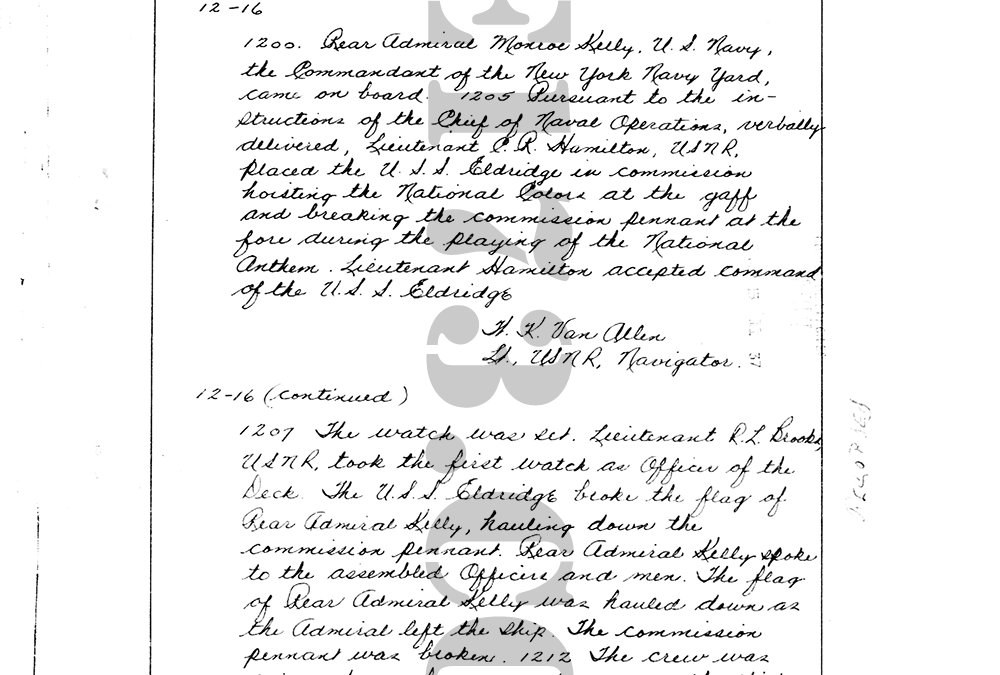 12-16
1200. Rear Admiral Monroe Kelly, U. S. Navy,
the Commandant of the New York Navy Yard,
came on board. 1205 Pursuant to the in-
structions of the Chief of Naval Operations, verbally
delivered, Lieutenant C. R. Hamilton, USNR,
placed the U. S. S. Eldridge in commission
hoisting the National Colors at the gaff
and breaking the commission pennant at the
fore during the playing of the National
Anthem. Lieutenant Hamilton accepted command
of the U. S. S. Eldridge
H. K. Van Allen
Lt., USNR, Navigator.
12-16 (continued)
1207 The watch was set. Lieutenant R. L. Brooks,
USNR, took the first watch as Officer of the
Deck. The U. S. S. Eldridge broke the flag of
Rear Admiral Kelly, hauling down the
commission pennant. Rear Admiral Kelly spoke
to the assembled Officers and men. The flag
of Rear Admiral Kelly was hauled down as
the Admiral left the ship. The commission
pennant was broken. 1212 The crew was